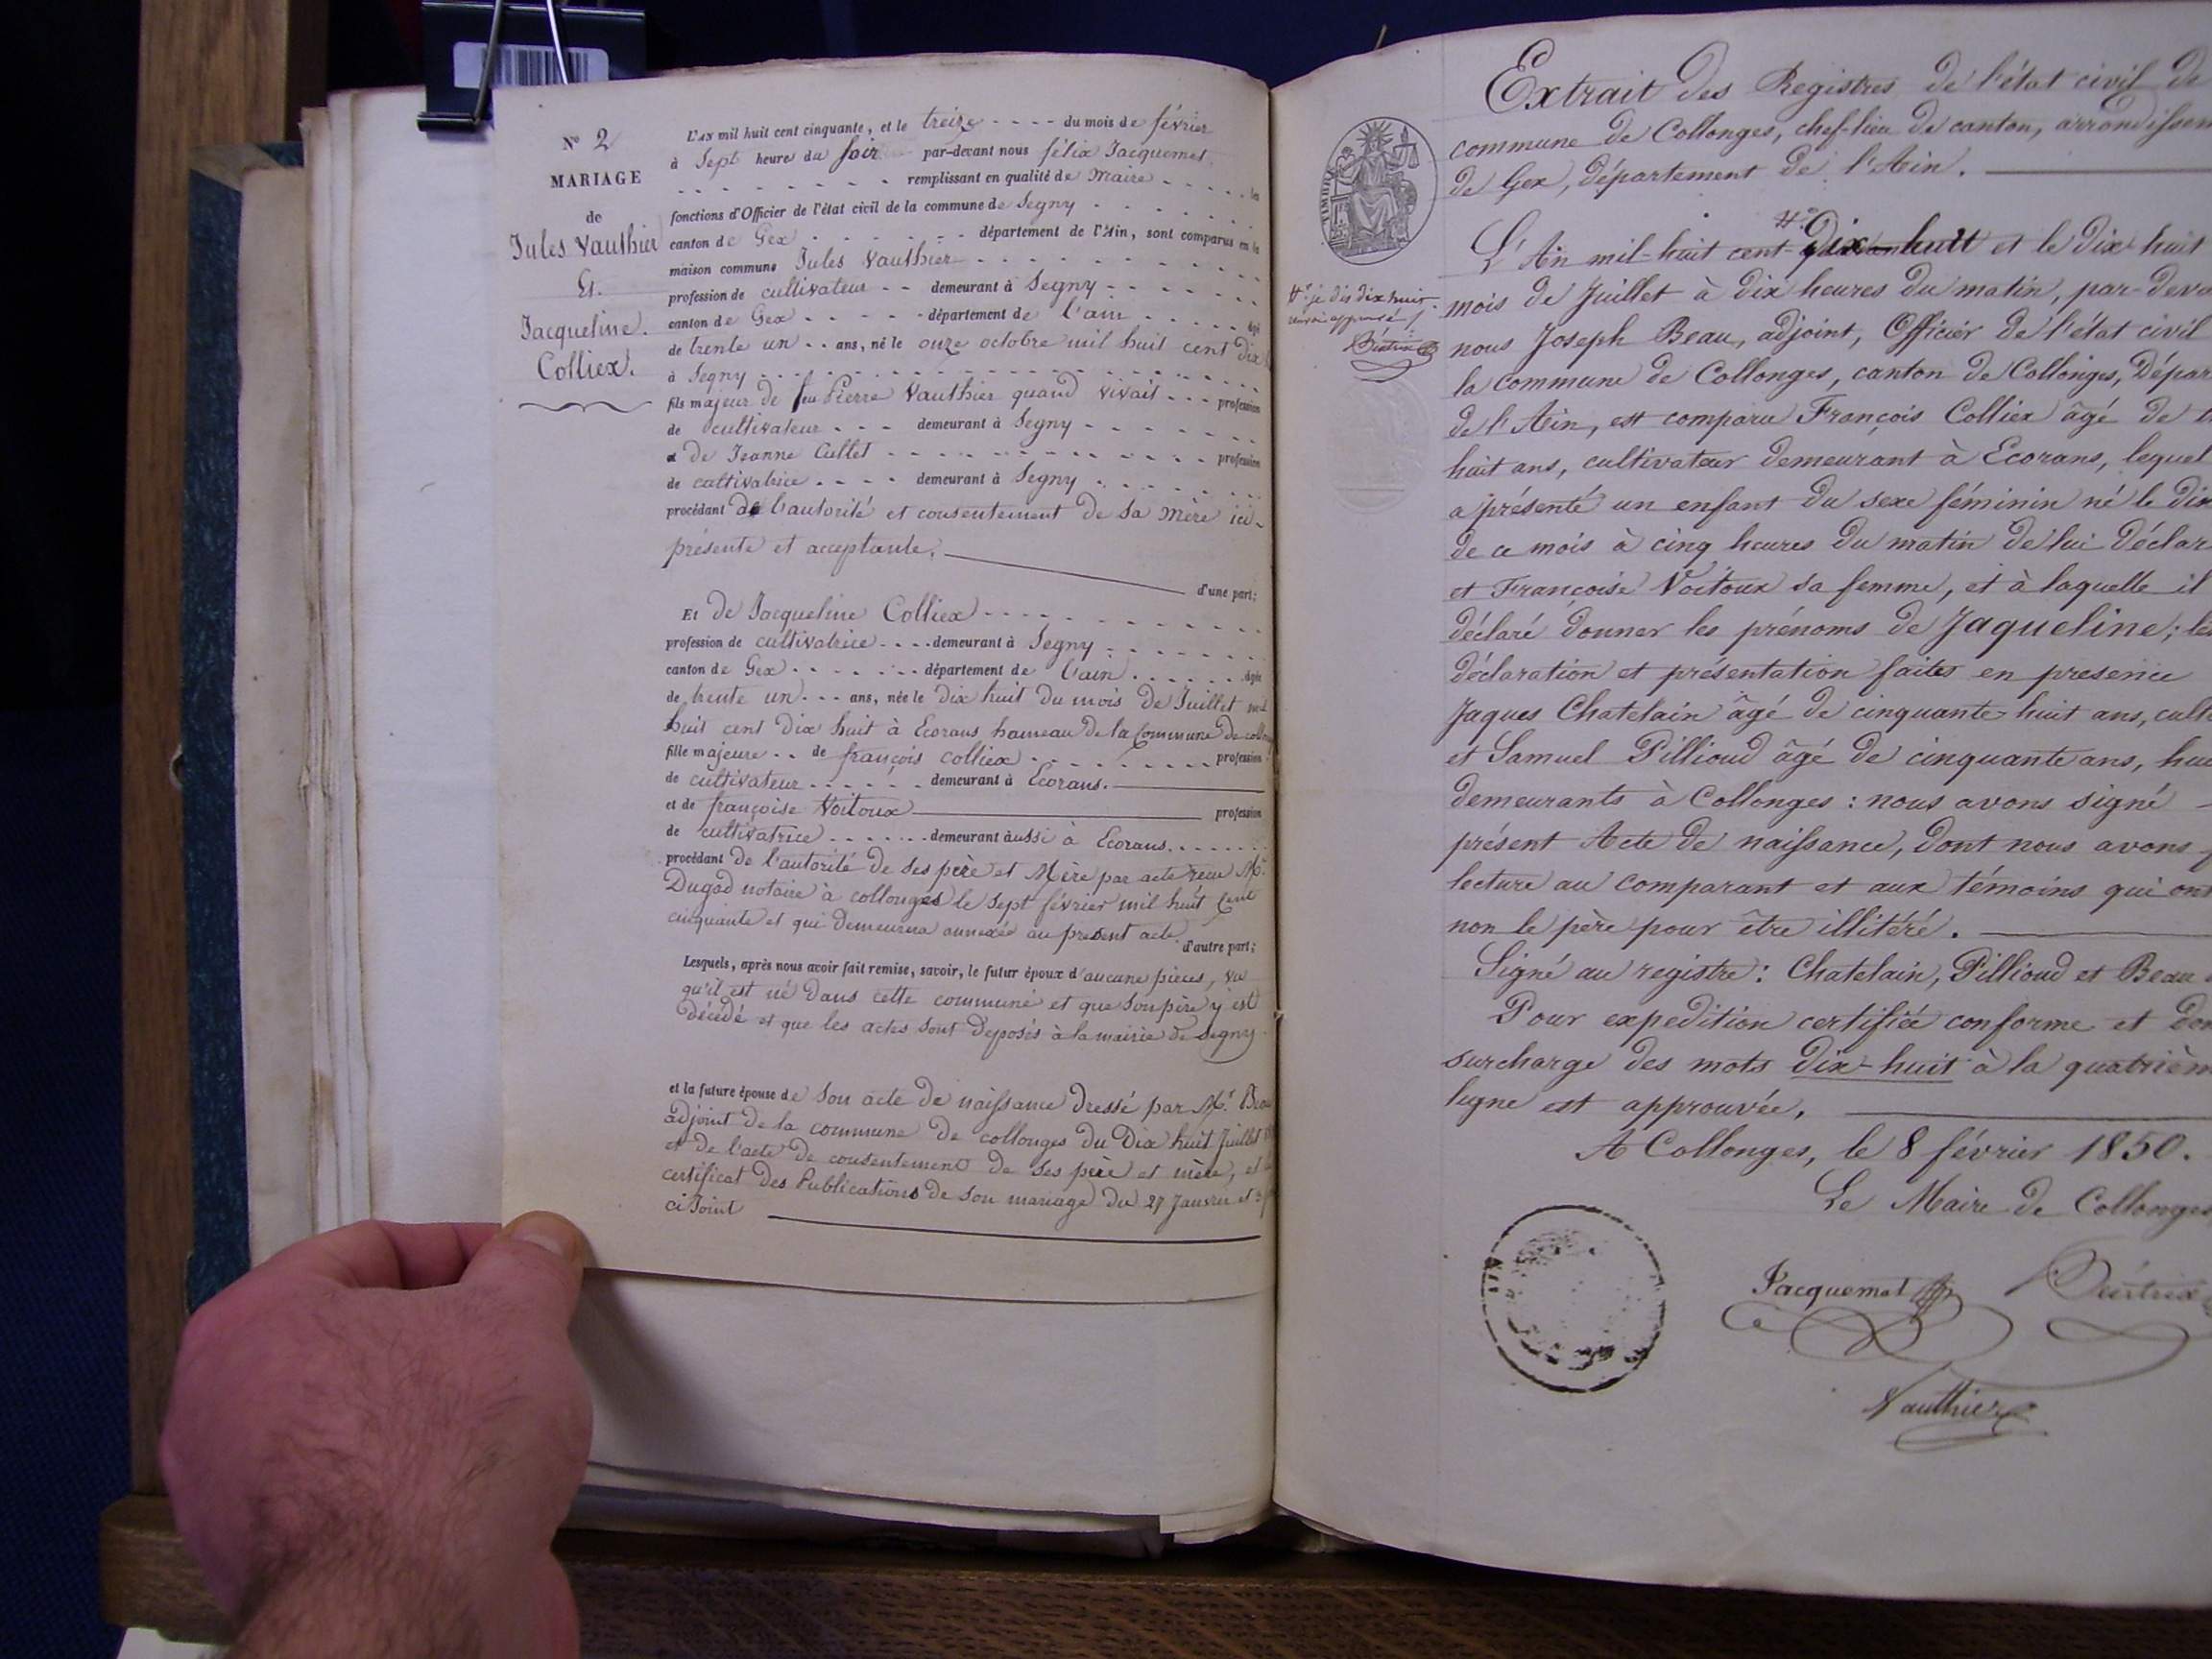 N° 2
MARIAGE
de
Jules Vauthier
Et
Jacqueline
Colliex.
L'AN mil huit cent cinquante, et le treize du mois de février
à Sept heure du Soir par-devant nous félix Jacquemet
remplissant en qualité de Maire les
fonctions d'Officier de l'état civil de la commune de Segny
canton de Gex département de l'Ain, sont comparus en la
maison commune Jules Vauthier
profession de cultivateur demeurant à Segny
canton de Gex département de l'ain âgé
de trente un ans, né le onze octobre mil huit cent dix
à Segny
fils majeur de feu Pierre Vauthier quand vivait profession
de cultivateur demeurant à Segny
et de Jeanne Cullet profession
de cultivatrice demeurant à Segny
procédant de l'autorité et consentement de sa Mère ici
présente et acceptante.
d'une part;
Et de Jacqueline Colliex
profession de cultivatrice demeurant à Segny
canton de Gex département de l'ain âgée
de trente un ans, née le Dix huit du mois de Juillet mil
huit cent Dix huit à Ecorans hameau de la Commune de
fille majeure de françois colliex profession
de cultivateur demeurant à Ecorans.
et de françoise Voitoux profession
de cultivatrice demeurant aussi à Ecorans
procédant de l'autorité de ses père et Mère par acte reçu Mr
Dugad notaire à collonges le Sept février mil huit Cent
cinquante et qui Demeurera annexée au present acte
d'autre part;
Lesquels, après nous avoir fait remise, savoir, le futur époux d'aucune pièces, vu
qu'il est né dans cette commune et que son père y est
Décédé et que les actes sont déposés à la mairie de Segny
et la future épouse de Son acte de naissance dressé par Mr Beau
adjoint de la commune de collonges du Dix huit Juillet
et de l'acte de consentement de ses père et mère, et
certificat des Publications de son mariage du 27 Janvier et 3
ci Joint
Extrait des Registres de l'état civil de
commune de Collonges, chef-lieu de canton,
de Gex, département de l'Ain.
L'An mil-huit cent Dix-huit et le Dix huit
mois de Juillet à dix heures du matin,
TIMBRE
je dis dix huit
nous Joseph Beau, adjoint, Officier de l'état civil
la commune de Collonges, canton de Collonges,
de l'Ain, est comparu François Colliex âgé de
huit ans, cultivateur demeurant à Ecorans, lequel
a présenté un enfant du sexe féminin né le
de ce mois à cinq heures du matin de lui
et Françoise Voitoux sa femme, et à laquelle il
déclaré donner les prénoms de Jaqueline;
déclaration et présentation faites en presence
Jaques Chatelain âgé de cinquante-huit ans,
et Samuel Pillioud âgé de cinquante ans,
demeurants à Collonges : nous avons signé
présent Acte de naissance, dont nous avons
lecture au comparant et aux témoins qui ont
non le père pour être illitéré.
Signé au registre : Chatelain, Pillioud et Beau
Pour expedition certifiée conforme et
surcharge des mots dix-huit à la
ligne est approuvée.
A Collonges, le 8 février 1850.
Le Maire de Collonges
Jacquemet
Vauthier